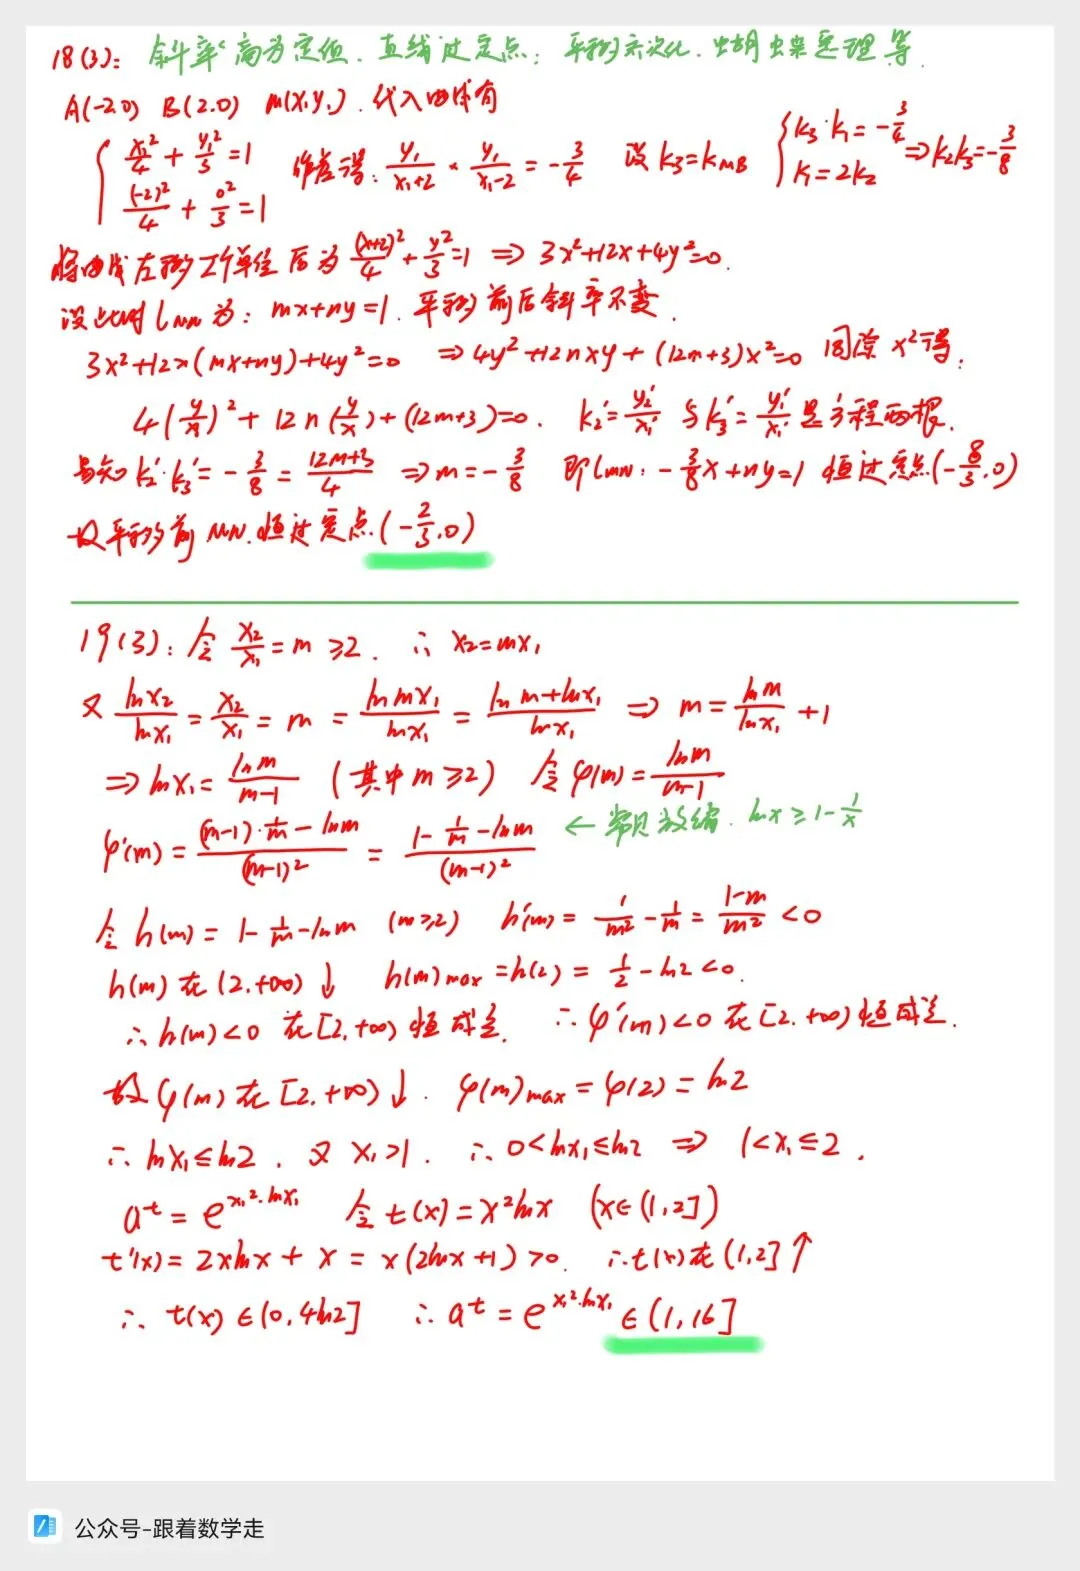 18(3): 斜率商为定值.直线过定点: 平移齐次化.蝴蝶定理等.
A(-2,0) B(2.0) M(x₁,y₁).代入曲线有
{ x₁²/4 + y₁²/3 = 1 (-2)²/4 + 0²/3 = 1 作差得: y₁/(x₁+2) × y₁/(x₁-2) = -3/4 设 k₃=k_MB { k₃·k₁=-3/4 k₁=2k₂ ⇒k₂k₃=-3/8
将曲线左移2个单位后为 (x+2)²/4 + y²/3 =1 ⇒ 3x²+12x+4y²=0.
设此时 l_MN 为: mx+ny=1. 平移前后斜率不变.
3x²+12x(mx+ny)+4y²=0 ⇒4y²+12nxy+(12m+3)x²=0 同除x²得.
4(y/x)²+12n(y/x)+(12m+3)=0. k₂'=y₂'/x₂' 与k₃'=y₁'/x₁' 是方程两根.
易知k₂'·k₃'=-3/8=(12m+3)/4 ⇒m=-3/8 即l_MN: -3/8x+ny=1 恒过定点(-8/3.0)
故平移前 MN.恒过定点(-2/3.0)
19(3): 令 x₂/x₁=m≥2. ∴ x₂=mx₁
又 lnx₂/lnx₁=x₂/x₁=m=lnmx₁/lnx₁=(lnm+lnx₁)/lnx₁ ⇒ m=lnm/lnx₁+1
⇒lnx₁=lnm/(m-1) (其中m≥2) 令φ(m)=lnm/(m-1)
φ'(m)=((m-1)·1/m-lnm)/(m-1)²=(1-1/m-lnm)/(m-1)² ← 常见放缩. lnx≥1-1/x
令 h(m)=1-1/m-lnm (m≥2) h'(m)=1/m²-1/m=(1-m)/m²<0
h(m)在(2.+∞)↓ h(m)max=h(2)=1/2-ln2<0.
∴h(m)<0 在[2.+∞)恒成立. ∴φ'(m)<0 在[2.+∞)恒成立.
故φ(m)在[2.+∞)↓. φ(m)max=φ(2)=ln2
∴lnx₁≤ln2. 又 x₁>1. ∴0<lnx₁≤ln2 ⇒ 1<x₁≤2.
aᵗ=e^(x₁²·lnx₁) 令t(x)=x²lnx (x∈(1,2])
t'(x)=2xlnx+x=x(2lnx+1)>0. ∴t(x)在(1,2]↑
∴t(x)∈(0,4ln2] ∴aᵗ=e^(x₁²·lnx₁)∈(1,16]
公众号-跟着数学走